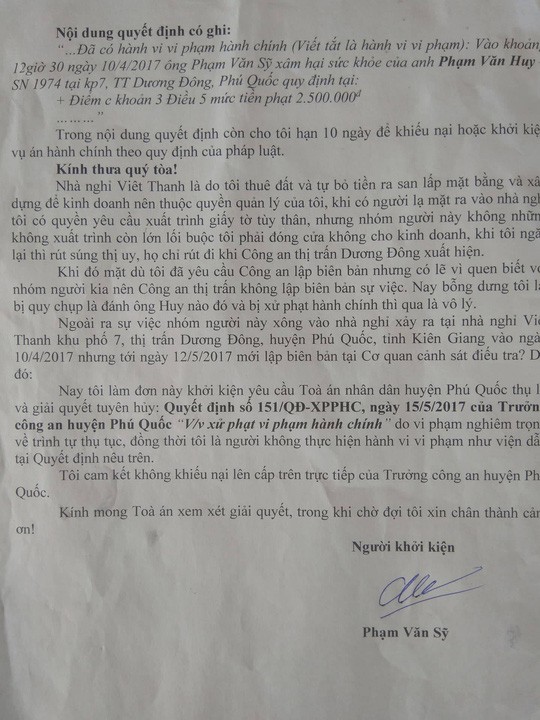 Nội dung quyết định có ghi:
“…Đã có hành vi vi phạm hành chính (Viết tắt là hành vi vi phạm): Vào khoảng
12giờ 30 ngày 10/4/2017 ông Phạm Văn Sỹ xâm hại sức khỏe của anh Phạm Văn Huy –
SN 1974 tại kp7, TT Dương Đông, Phú Quốc quy định tại:
+ Điểm c khoản 3 Điều 5 mức tiền phạt 2.500.000đ
………”
Trong nội dung quyết định còn cho tôi hạn 10 ngày để khiếu nại hoặc khởi kiện
vụ án hành chính theo quy định của pháp luật.
Kính thưa quý tòa!
Nhà nghỉ Viêt Thanh là do tôi thuê đất và tự bỏ tiền ra san lấp mặt bằng và xây
dựng để kinh doanh nên thuộc quyền quản lý của tôi, khi có người lạ mặt ra vào nhà nghỉ
tôi có quyền yêu cầu xuất trình giấy tờ tùy thân, nhưng nhóm người này không những
không xuất trình còn lớn lối buộc tôi phải đóng cửa không cho kinh doanh, khi tôi ngăn
lại thì rút súng thị uy, họ chỉ rút đi khi Công an thị trấn Dương Đông xuất hiện.
Khi đó mặt dù tôi đã yêu cầu Công an lập biên bản nhưng có lẽ vì quen biết với
nhóm người kia nên Công an thị trấn không lập biên bản sự việc. Nay bỗng dưng tôi lại
bị quy chụp là đánh ông Huy nào đó và bị xử phạt hành chính thì qua là vô lý.
Ngoài ra sự việc nhóm người này xông vào nhà nghỉ xảy ra tại nhà nghỉ Việt
Thanh khu phố 7, thị trấn Dương Đông, huyện Phú Quốc, tỉnh Kiên Giang vào ngày
10/4/2017 nhưng tới ngày 12/5/2017 mới lập biên bản tại Cơ quan cảnh sát điều tra? Do
đó:
Nay tôi làm đơn này khởi kiện yêu cầu Toà án nhân dân huyện Phú Quốc thụ lý
và giải quyết tuyên hủy: Quyết định số 151/QĐ-XPPHC, ngày 15/5/2017 của Trưởng
công an huyện Phú Quốc “V/v xử phạt vi phạm hành chính” do vi phạm nghiêm trọng
về trình tự thụ tục, đồng thời tôi là người không thực hiện hành vi vi phạm như viện dẫn
tại Quyết định nêu trên.
Tôi cam kết không khiếu nại lên cấp trên trực tiếp của Trưởng công an huyện Phú
Quốc.
Kính mong Toà án xem xét giải quyết, trong khi chờ đợi tôi xin chân thành cảm
ơn!
Người khởi kiện
Phạm Văn Sỹ